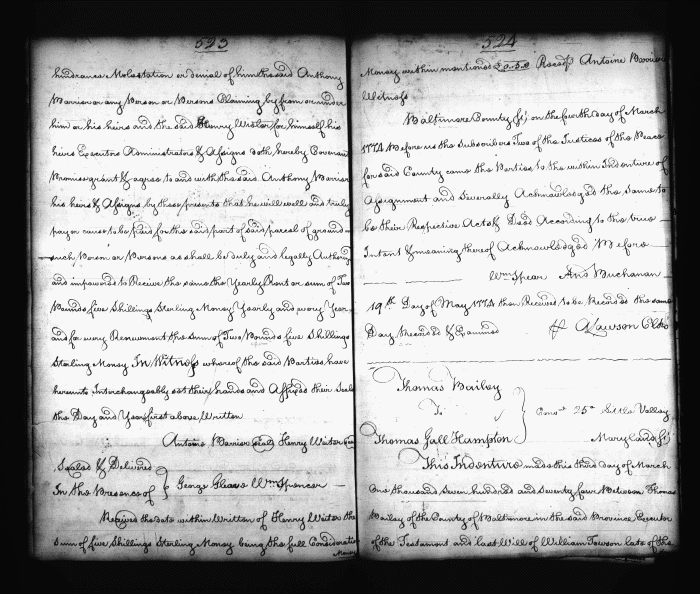 523
hindrance Molestation or denial of him the said Anthony
Barrier or any Person or Persons Claiming by from or under
him or his heirs and the said Henry Wister for himself his
heirs Executors Administrators & Assigns doth hereby Covenant
Promise grant & agree to and with the said Anthony Barrier
his heirs & Assigns by these presents that he will well and truly
pay or cause to be paid for the said part of said parcel of ground
such Person or Persons as shall be duly and legally Authoriz
and impowered to Receive the same the Yearly Rent or sum of Two
Pounds five Shillings Sterling Money Yearly and every Year
and for every Renewment the sum of Two Pounds five Shillings
Sterling Money In Witness whereof the said Parties have
hereunto Interchangeably set their hands and Affixed their Seals
the Day and Year first above Written
Antoine Barrier Seal Henry Wister Seal
Sealed & Delivered
In the Presence of
George Gleave Wm Spencer
Received the date within Written of Henry Wister the
Sum of five Shillings Sterling Money being the full Consideration
Money
524
Money within mentioned £0.5.0 Recd. p Antoine Barrier
Witness
Baltimore County Sc on the fourth day of March
1774 Before us the Subscribers Two of the Justices of the Peace
for said County came the Parties to the within Indenture of
Assignment and Severally Acknowledged the same to
be their Respective Acts & Deed According to the true
Intent & meaning thereof Acknowledged Before
Wm Spear And Buchanan
19th Day of May 1774 then Received to be Recorded the same
Day Recorded & Examined & A Lawson Clk
Thomas Bailey
To
Thomas Gall Humpton
Cons. 25a Little Valley
Maryland Sc
This Indenture made this third day of March
One thousand Seven hundred and Seventy four Between Thomas
Bailey of the County of Baltimore in the said Province Executor
of the Testament and last Will of William Towson late of the